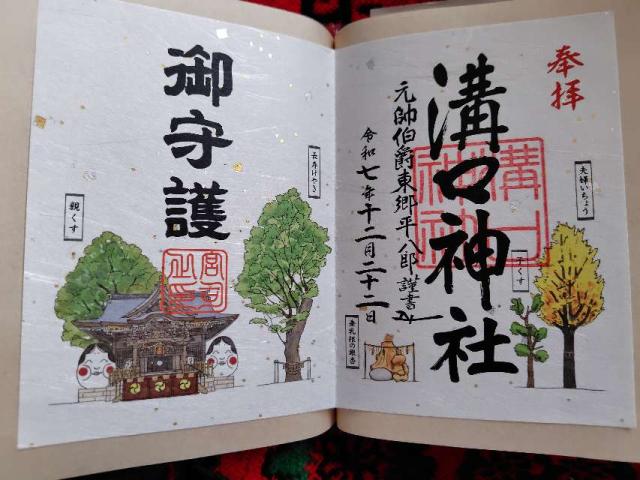 奉拝
溝口神社
溝口神社
元帥伯爵東郷平八郎謹書
令和七年十二月二十二日
夫婦いちょう
子くす
御守護
宮司之印
長寿けやき
親くす